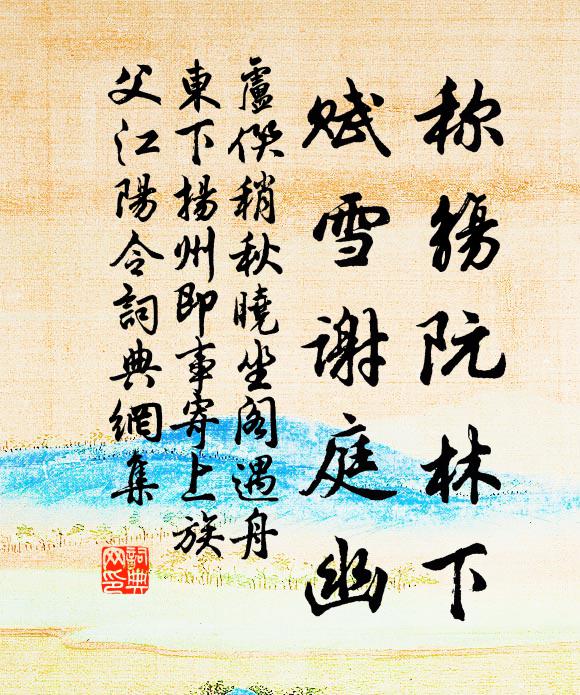 称觞阮林下
赋雪谢庭幽
盧僎稍秋曉坐阁遇舟
東下揚州即事寄上族
父江陽令詞典網集
詞典网印